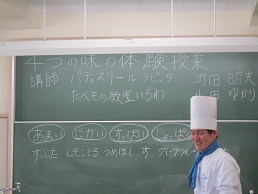 ４つの味の体験授業
講師 パティスリール ラピュタ 河田 昭夫
たべもの教室いろわ 山田 ゆかり
あまい にがい すっぱい しょっぱ
すぶた レモンじる うめぼし す